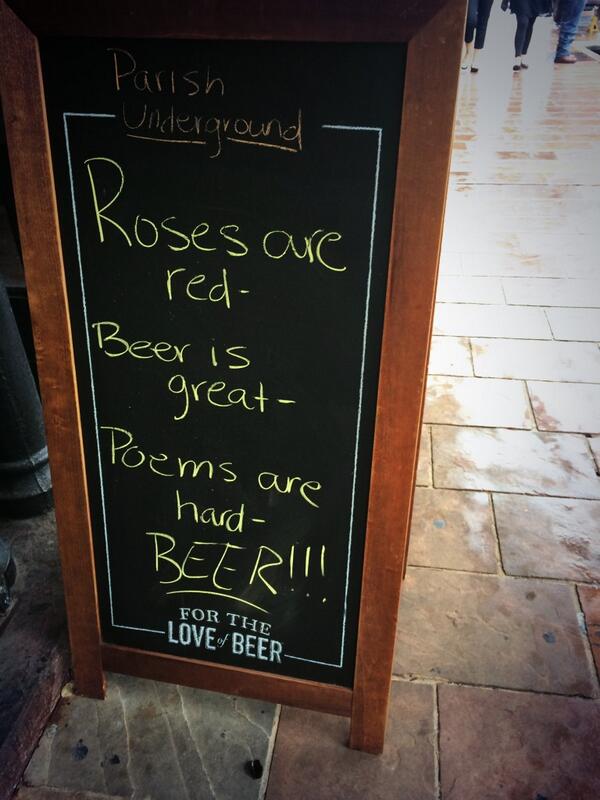 Parish
Underground
Roses are
red-
Beer is
great-
Poems are
hard-
BEER!!!
FOR THE
LOVE of BEER